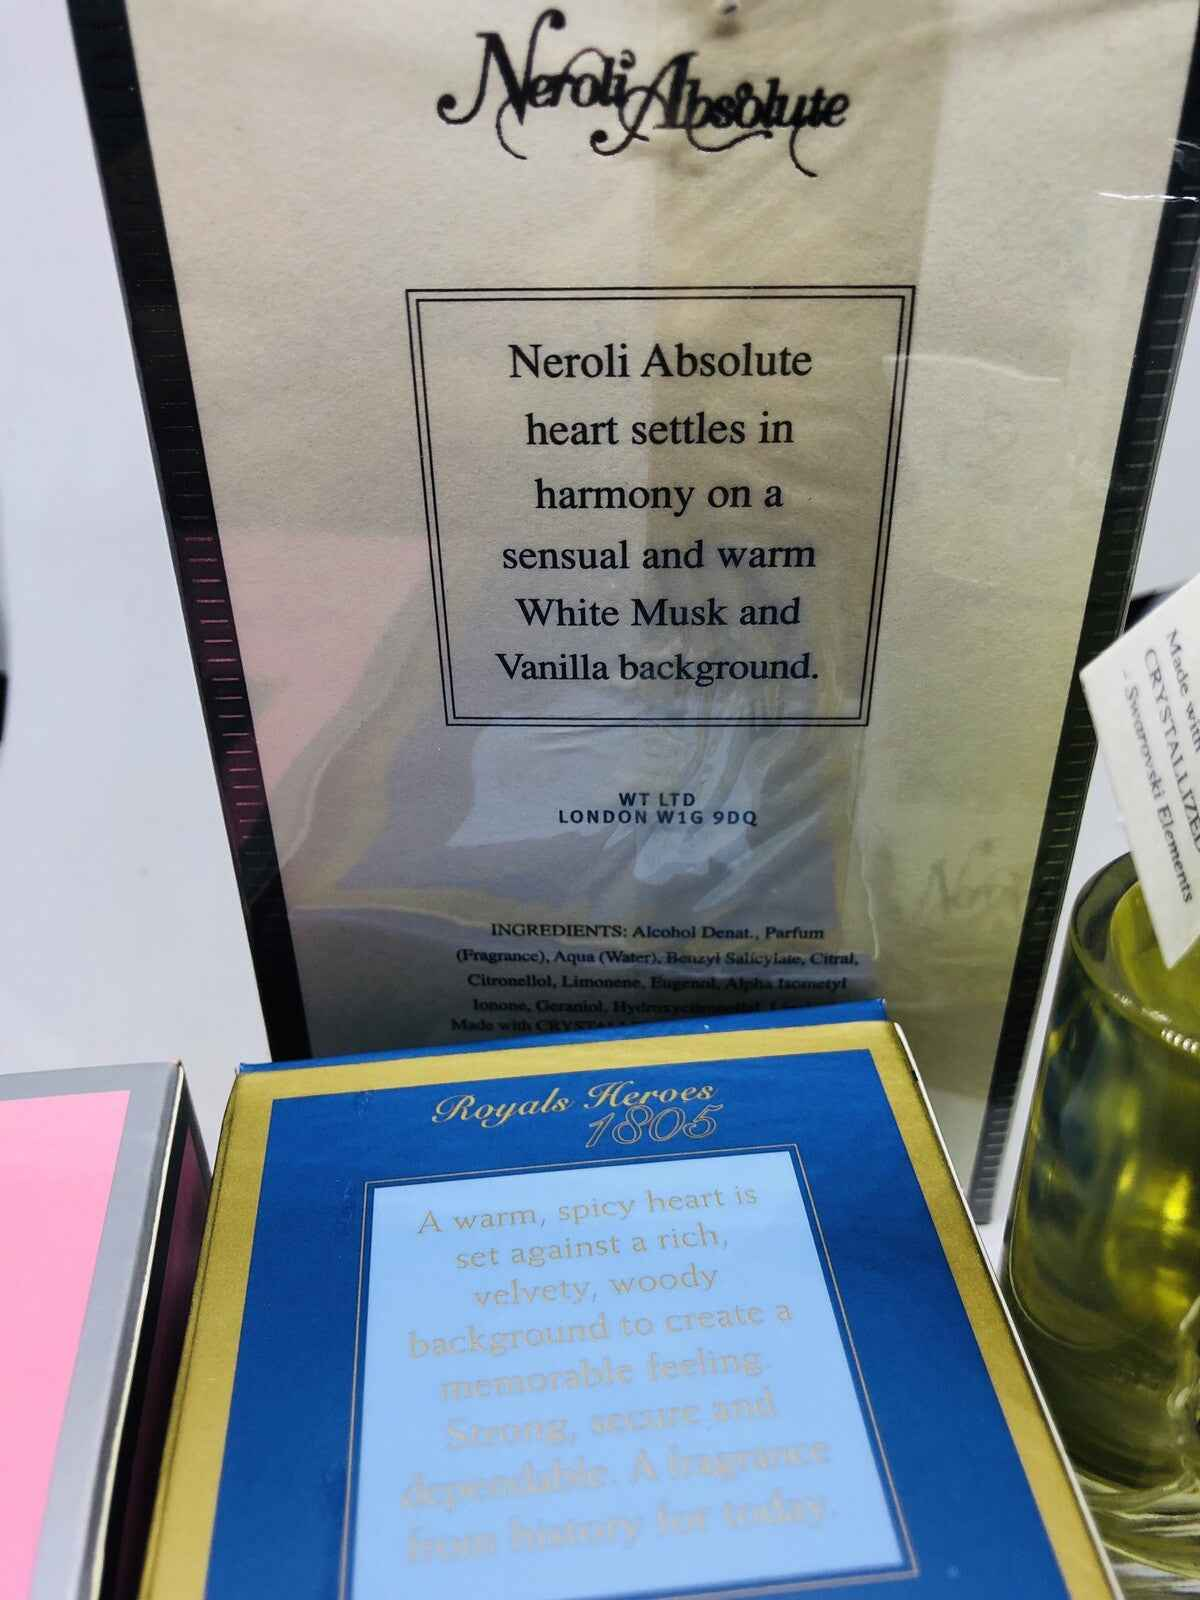 Neroli Absolute
Neroli Absolute
heart settles in
harmony on a
sensual and warm
White Musk and
Vanilla background.
WT LTD
LONDON W1G 9DQ
INGREDIENTS: Alcohol Denat., Parfum
(Fragrance), Aqua (Water), Benzyl Salicylate, Citral,
Citronellol, Limonene, Eugenol, Alpha Isometyl
Ionone, Geraniol, Hydroxycitronellol,
Made with
Made with
CRYSTALLIZED
- Swarovski Elements
Royals Heroes
1805
A warm, spicy heart is
set against a rich,
velvety, woody
background to create a
memorable feeling.
Strong, secure and
dependable. A fragrance
from history for today.